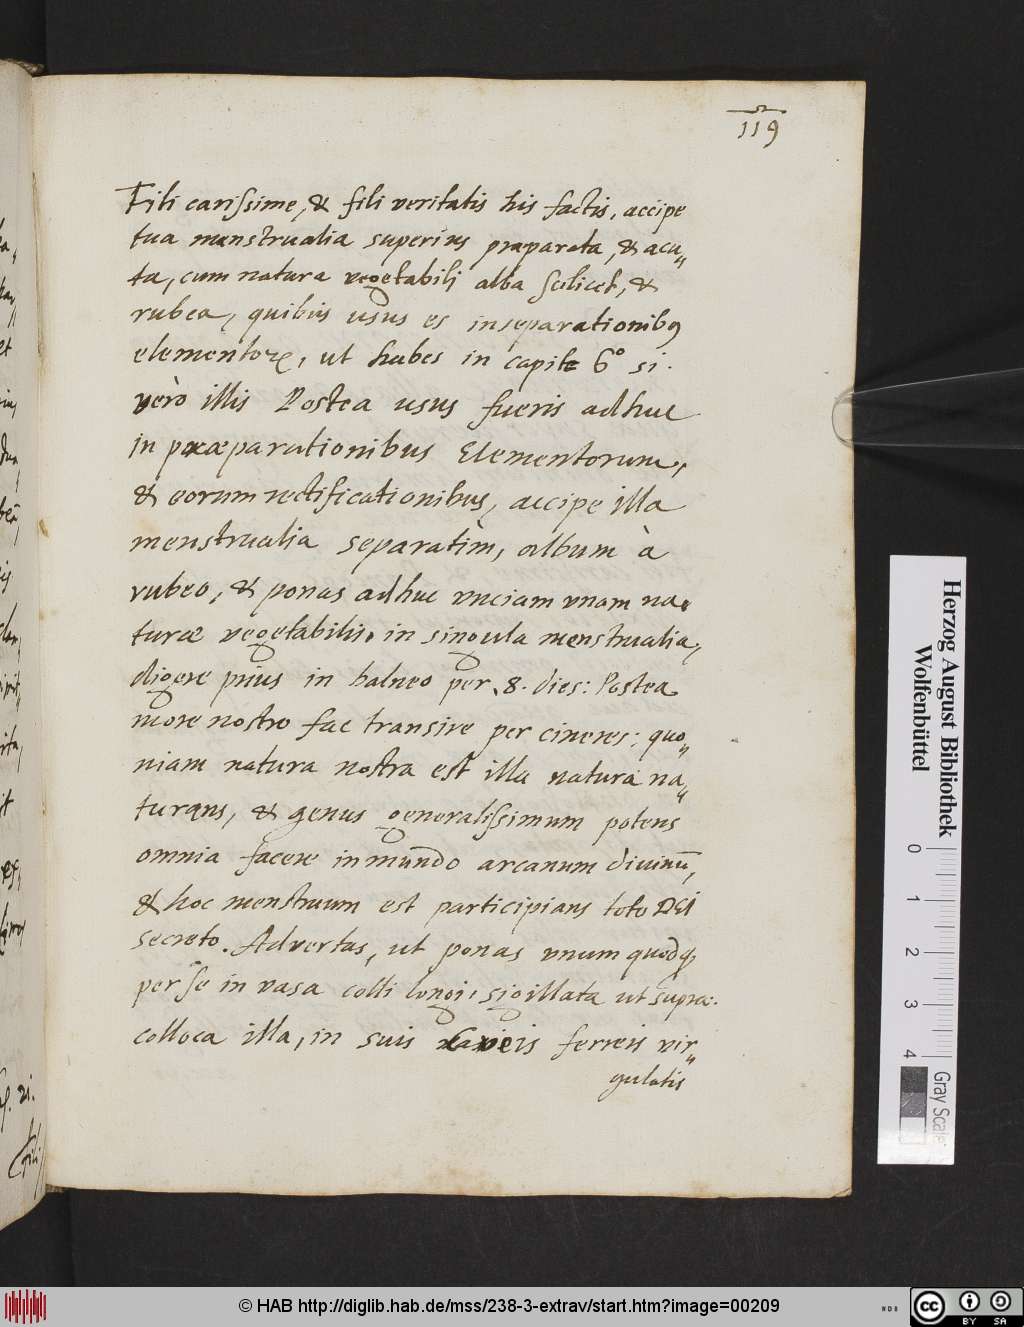 119
Fili carissime, & fili veritatis his factis, accipe
tua menstrualia superius præparata, & acu„
ta, cum natura vegetabilj alba scilicet, &
rubea, quibus usus es in separationibꝯ
elementorꝝ, ut habes in capite 6° si.
verò illis Postea usus fueris adhuc
in præparationibus Elementorum,
& eorum rectificationibus, accipe illa
menstrualia separatim, album à
rubeo, & ponas adhuc vnciam vnam na„
turæ vegetabilis, in singula menstrualia,
digere prius in balneo per .8. dies: Postea
more nostro fac transire per cineres: quo„
niam natura nostra est illa natura na„
turans, & genus generalissimum potens
omnia facere in mundo arcanum diuinū,
& hoc menstruum est participians toto DEI
secreto. Advertas, ut ponas vnum quodqꝫ
per se in vasa colli longi, sigillata ut supra:
colloca illa, in suis caveis ferreis vir„
gulatis
Herzog August Bibliothek
Wolfenbüttel
0 1 2 3 4
Gray Scale
© HAB http://diglib.hab.de/mss/238-3-extrav/start.htm?image=00209
cc BY SA